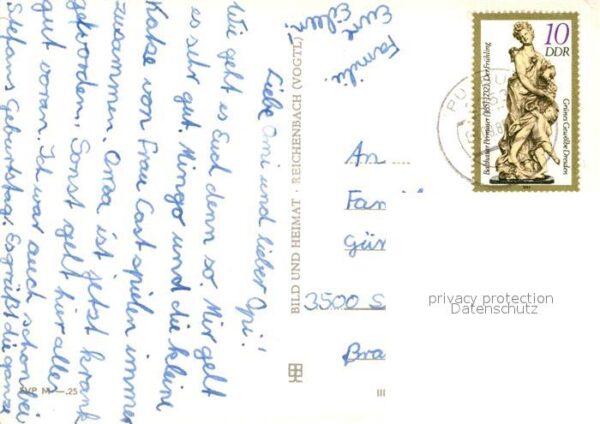 Liebe Omi und lieber Opi!
Wie geht es Eud denn so. Mir gelt
es sehr gut. Mingo und die kleine
Katze von Frau Cast spielen immer
zusammen. Oma ist jetst krank
geworden. Sonst gelt hier alles
gut voran. Id war auch schon bei
Stefans Geburtstag. Es grüßt die ganze
Familie
Eure
BILD UND HEIMAT · REICHENBACH (VOGTL)
EVP M —.25
III
An
Fam
Gür
3500 S
Bra
10
DDR
Balthasar Permoser (1651-1732), Der Frühling
Grünes Gewölbe Dresden
privacy protection
Datenschutz